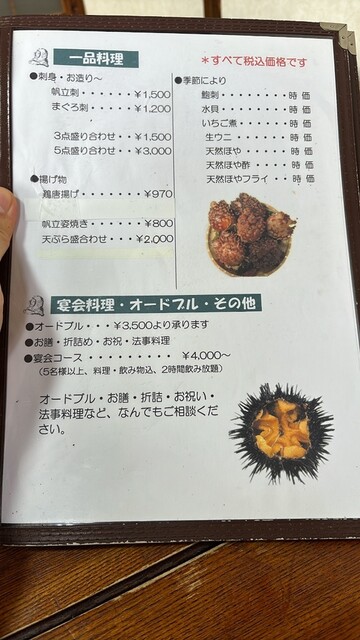 一品料理
＊すべて税込価格です
●刺身・お造り～
帆立刺・・・・・￥1,500
まぐろ刺・・・・￥1,200
3点盛り合わせ・・￥1,500
5点盛り合わせ・・￥3,000
●揚げ物
鶏唐揚げ・・・・・・・￥970
帆立姿焼き・・・・・￥800
天ぷら盛合わせ・・・￥2,000
●季節により
鮑刺・・・・・・・・・時 価
水貝・・・・・・・・・時 価
いちご煮・・・・・・・時 価
生ウニ・・・・・・・・時 価
天然ほや・・・・・・・時 価
天然ほや酢・・・・・・時 価
天然ほやフライ・・・・時 価
宴会料理・オードブル・その他
●オードブル・・・￥3,500より承ります
●お膳・折詰め・お祝・法事料理
●宴会コース・・・・・・・・・ ￥4,000～
（5名様以上、料理・飲み物込、2時間飲み放題）
オードブル・お膳・折詰・お祝い・
法事料理など、なんでもご相談くださ
い。